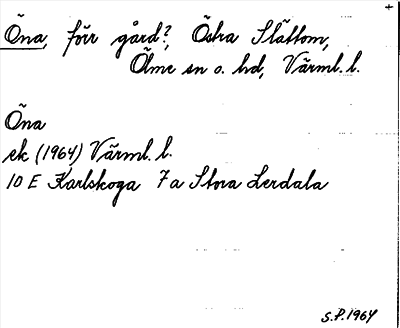 Öna, förr gård?, Östra Slättom,
Ölme sn o. hd, Värml. l.
Öna
ek (1964) Värml. l.
10 E Karlskoga 7a Stora Lerdala
S.P. 1964